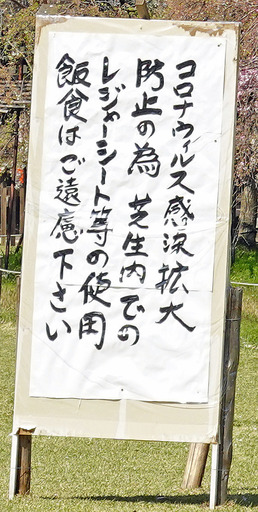 コロナウィルス感染拡大
防止の為 芝生内での
レジャーシート等の使用
飯食はご遠慮下さい